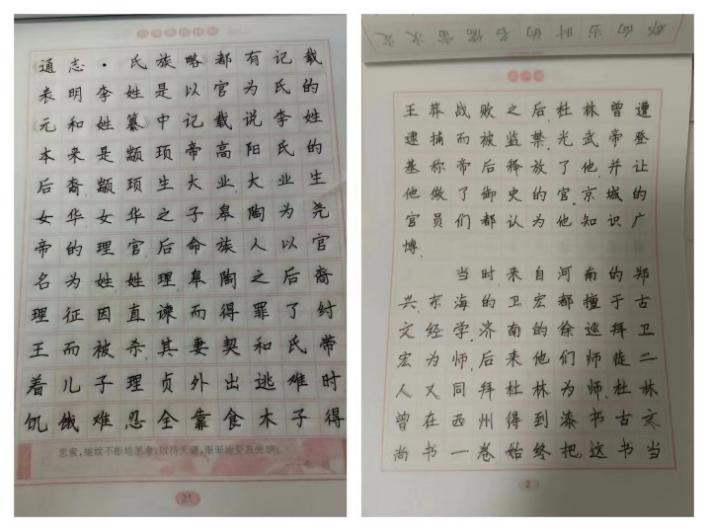 《通志·氏族略》都有记载
表明李姓是以官为氏的
《元和姓纂》中记载说李姓
本来是颛顼帝高阳氏的
后裔颛顼生大业,大业生
女华女华之子皋陶为尧
帝的理官后命族人以官
名为姓姓理,皋陶之后裔
理征因直谏而得罪了纣
王而被杀,其妻契和氏带
着儿子理贞外出逃难时
饥饿难忍全靠食木子得
21
都向当时的名儒
王莽战败之后,杜林曾遭
逮捕而被监禁,光武帝登
基称帝后释放了他,并让
他做了御史的官,京城的
官员们都认为他知识广
博.
当时来自河南的郑
兴,东海的卫宏都擅于古
文经学,济南的徐巡拜卫
宏为师,后来他们师徒二
人又同拜杜林为师,杜林
曾在西州得到漆书古文
尚书一卷始终把这书当
2